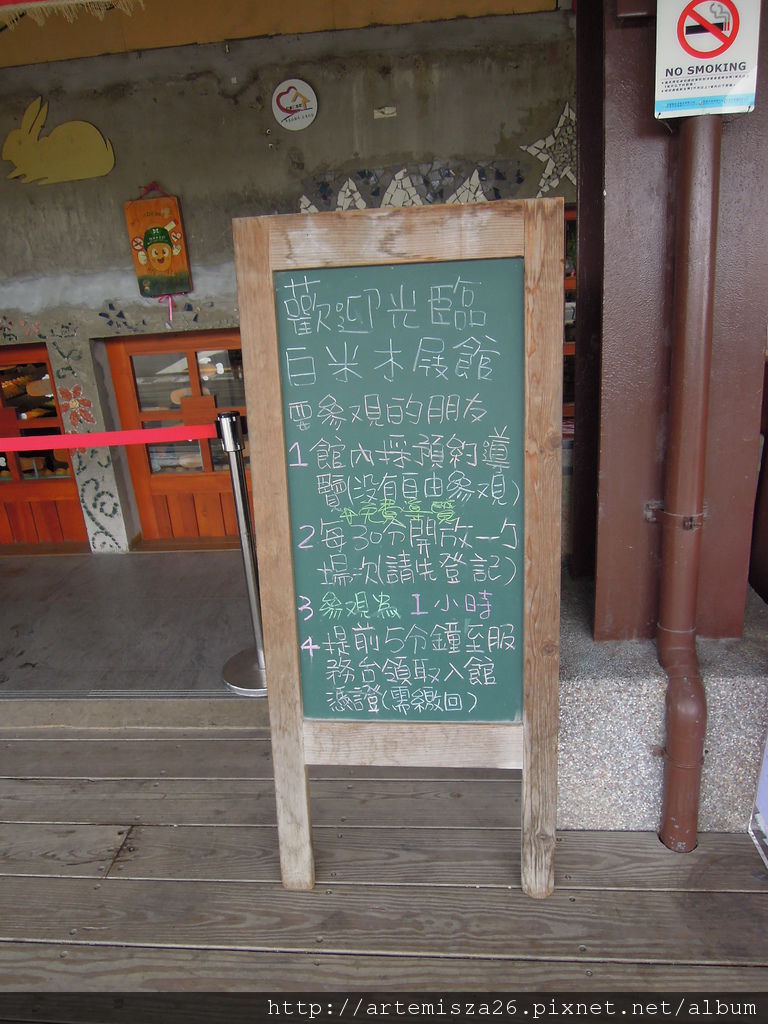 NO SMOKING
歡迎光臨
白米木屐館
要參觀的朋友
1 館內採預約導
覽(沒有自由參觀)
免費導覽
2 每30分開放一个
場次(請先登記)
3 參觀為 1小時
4 提前5分鐘至服
務台領取入館
憑證(需繳回)
http://artemisza26.pixnet.net/album